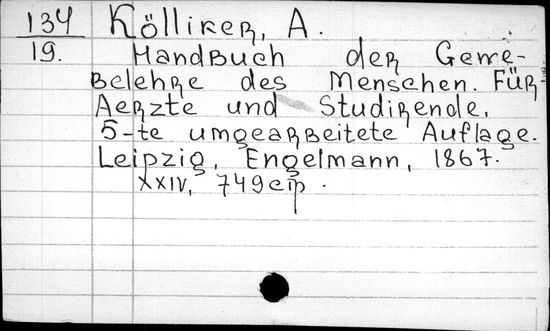 134 Kölliker, A.
19. Handbuch der Gewe-
belehre des Menschen. Für
Aerzte und Studirende.
5-te umgearbeitete Auflage.
Leipzig, Engelmann, 1867.
XXIV, 749 стр.